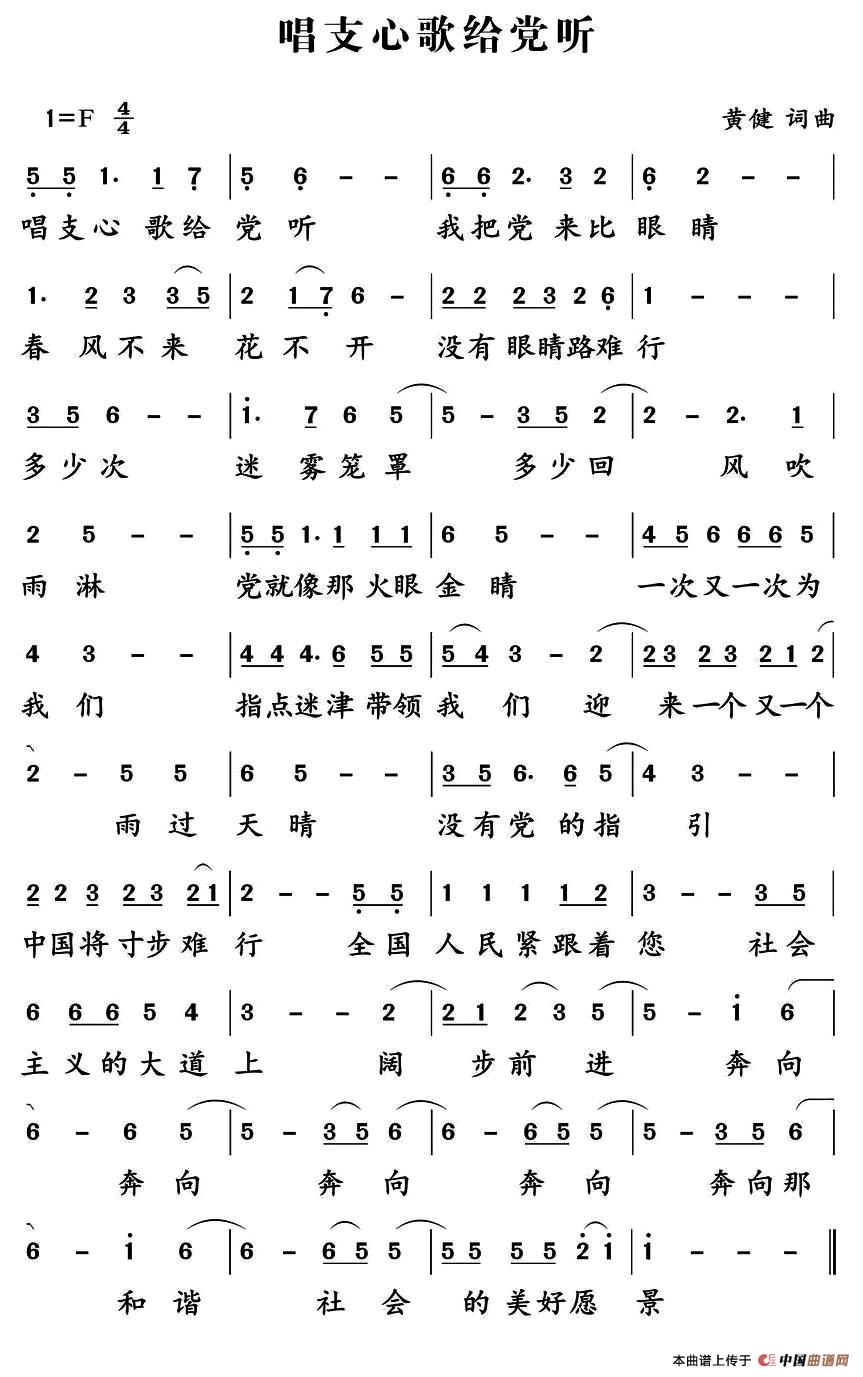 唱支心歌给党听
1=F 4/4 黄健 词曲
5 5 1. 1 7 | 5 6 - - | 6 6 2. 3 2 | 6 2 - - |
唱支心 歌给 党 听 我把党 来比 眼 睛
1. 2 3 3 5 | 2 1 7 6 - | 2 2 2 3 2 6 | 1 - - - |
春 风不 来 花 不 开 没有 眼睛路难 行
3 5 6 - - | 1. 7 6 5 | 5 - 3 5 2 | 2 - 2. 1 |
多少次 迷 雾笼 罩 多少回 风 吹
2 5 - - | 5 5 1. 1 1 1 | 6 5 - - | 4 5 6 6 6 5 |
雨 淋 党就像那 火眼 金 睛 一次又一次为
4 3 - - | 4 4 4. 6 5 5 | 5 4 3 - 2 | 2 3 2 3 2 1 2 |
我 们 指点迷津 带领 我 们 迎 来 一个 又一个
2 - 5 5 | 6 5 - - | 3 5 6. 6 5 | 4 3 - - |
雨 过 天 晴 没有党 的指 引
2 2 3 2 3 2 1 | 2 - - 5 5 | 1 1 1 1 2 | 3 - - 3 5 |
中国将 寸步 难 行 全国 人民紧 跟着 您 社会
6 6 6 5 4 | 3 - - 2 | 2 1 2 3 5 | 5 - 1 6 |
主 义的 大 道 上 阔 步 前 进 奔 向
6 - 6 5 | 5 - 3 5 6 | 6 - 6 5 5 | 5 - 3 5 6 |
奔 向 奔 向 奔 向 奔向那
6 - 1 6 | 6 - 6 5 5 | 5 5 5 5 2 1 | 1 - - - ‖
和 谐 社 会 的 美好愿 景
本曲谱上传于 中国曲谱网